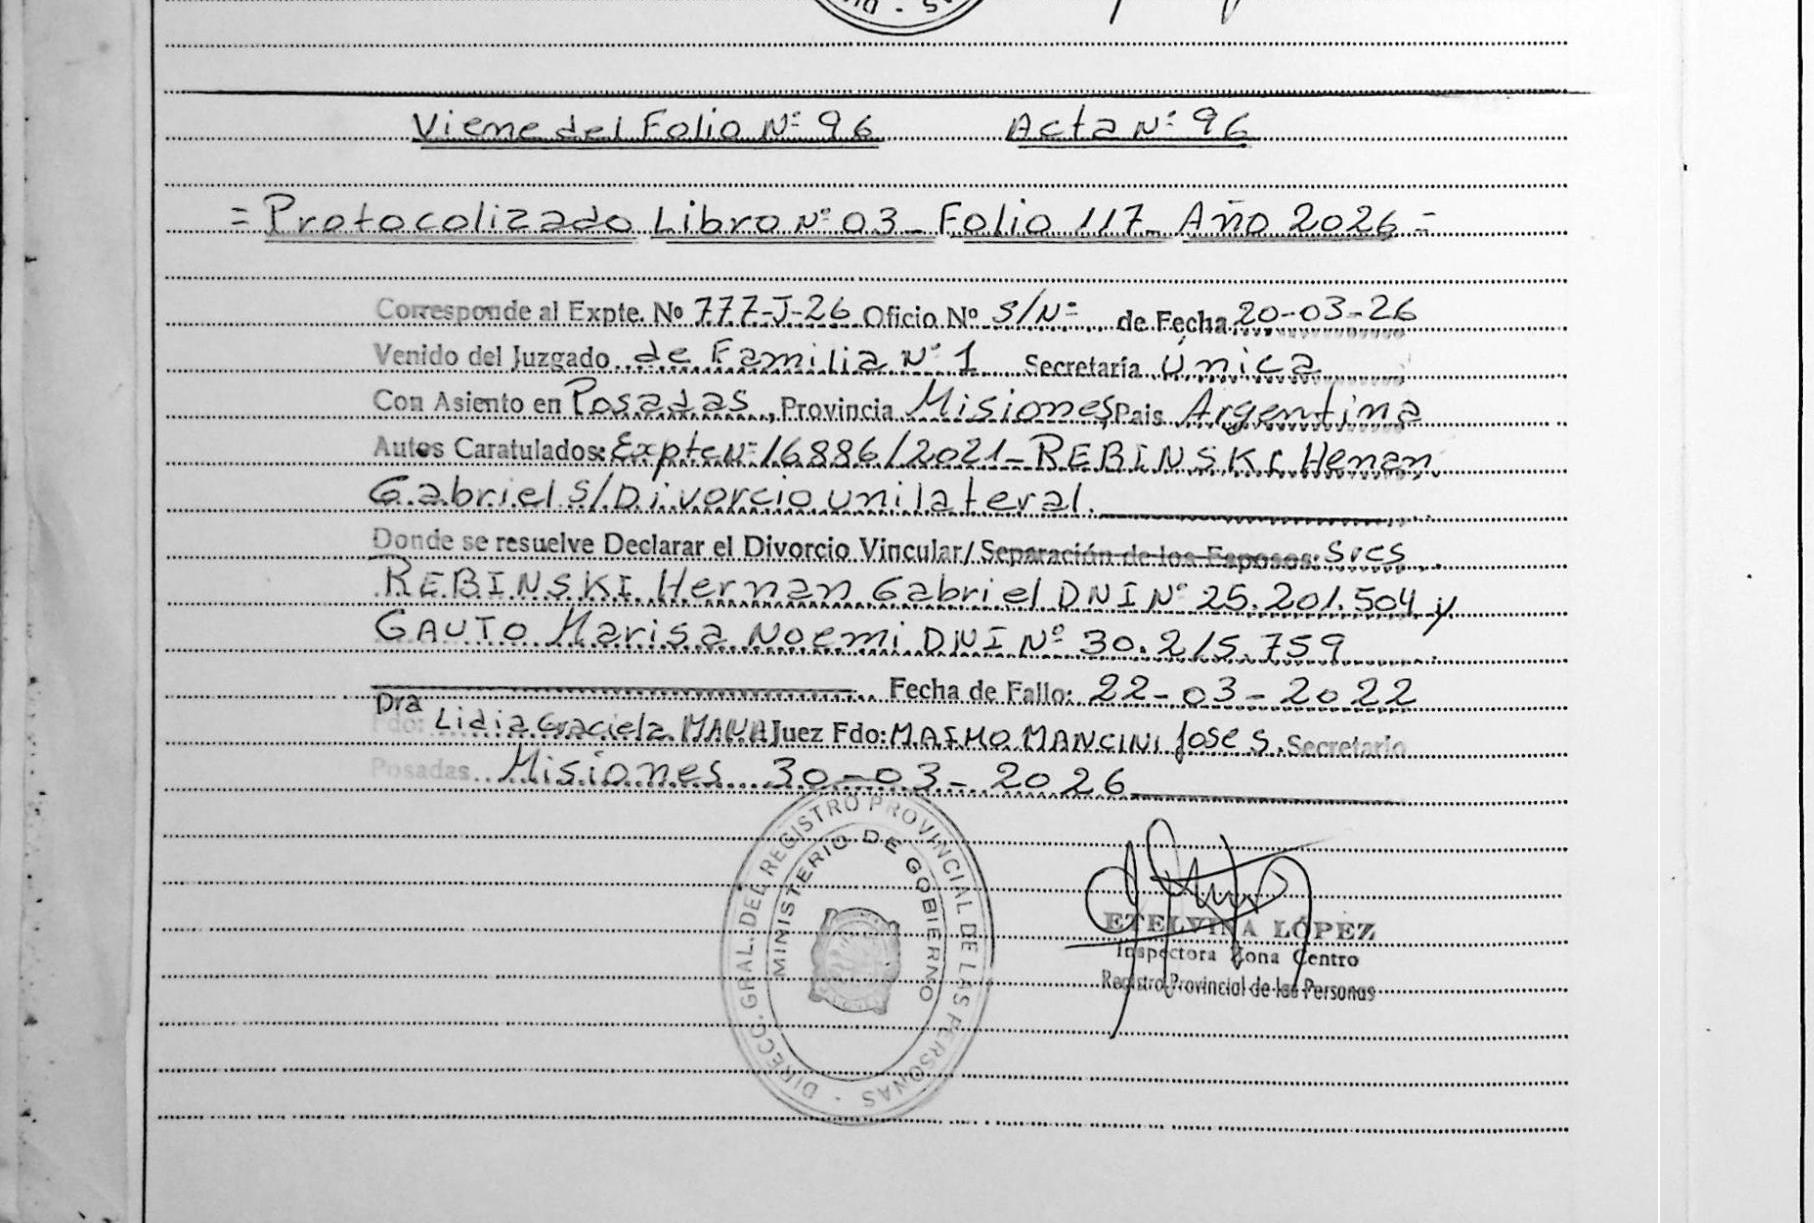 Viene del Folio Nº 96 Acta Nº 96
= Protocolizado Libro Nº 03_ Folio 117_ Año 2026 =
Corresponde al Expte. Nº 777-J-26 Oficio Nº S/Nº de Fecha 20-03-26
Venido del Juzgado de Familia Nº 1 Secretaría Única
Con Asiento en Posadas, Provincia Misiones, Pais Argentina
Autos Caratulados: Expte Nº 16886/2021_ REBINSKI Henan
Gabriel S/Divorcio unilateral.
Donde se resuelve Declarar el Divorcio Vincular/ Separación de los Esposos: Srես
REBINSKI Hernan Gabriel DNI Nº 25.201.504 y
GAUTO Marisa Noemi DNI Nº 30.215.759
Fecha de Fallo: 22-03-2022
Dra
Fdo: Lidia Graciela Juez Fdo: MAIMO MANCINI Jose S. Secretario
Posadas Misiones 30-03-2026
DIRECC. GRAL. DEL REGISTRO PROVINCIAL DE LAS PERSONAS
MINISTERIO DE GOBIERNO
ETELVINA LÓPEZ
Inspectora Zona Centro
Registro Provincial de las Personas